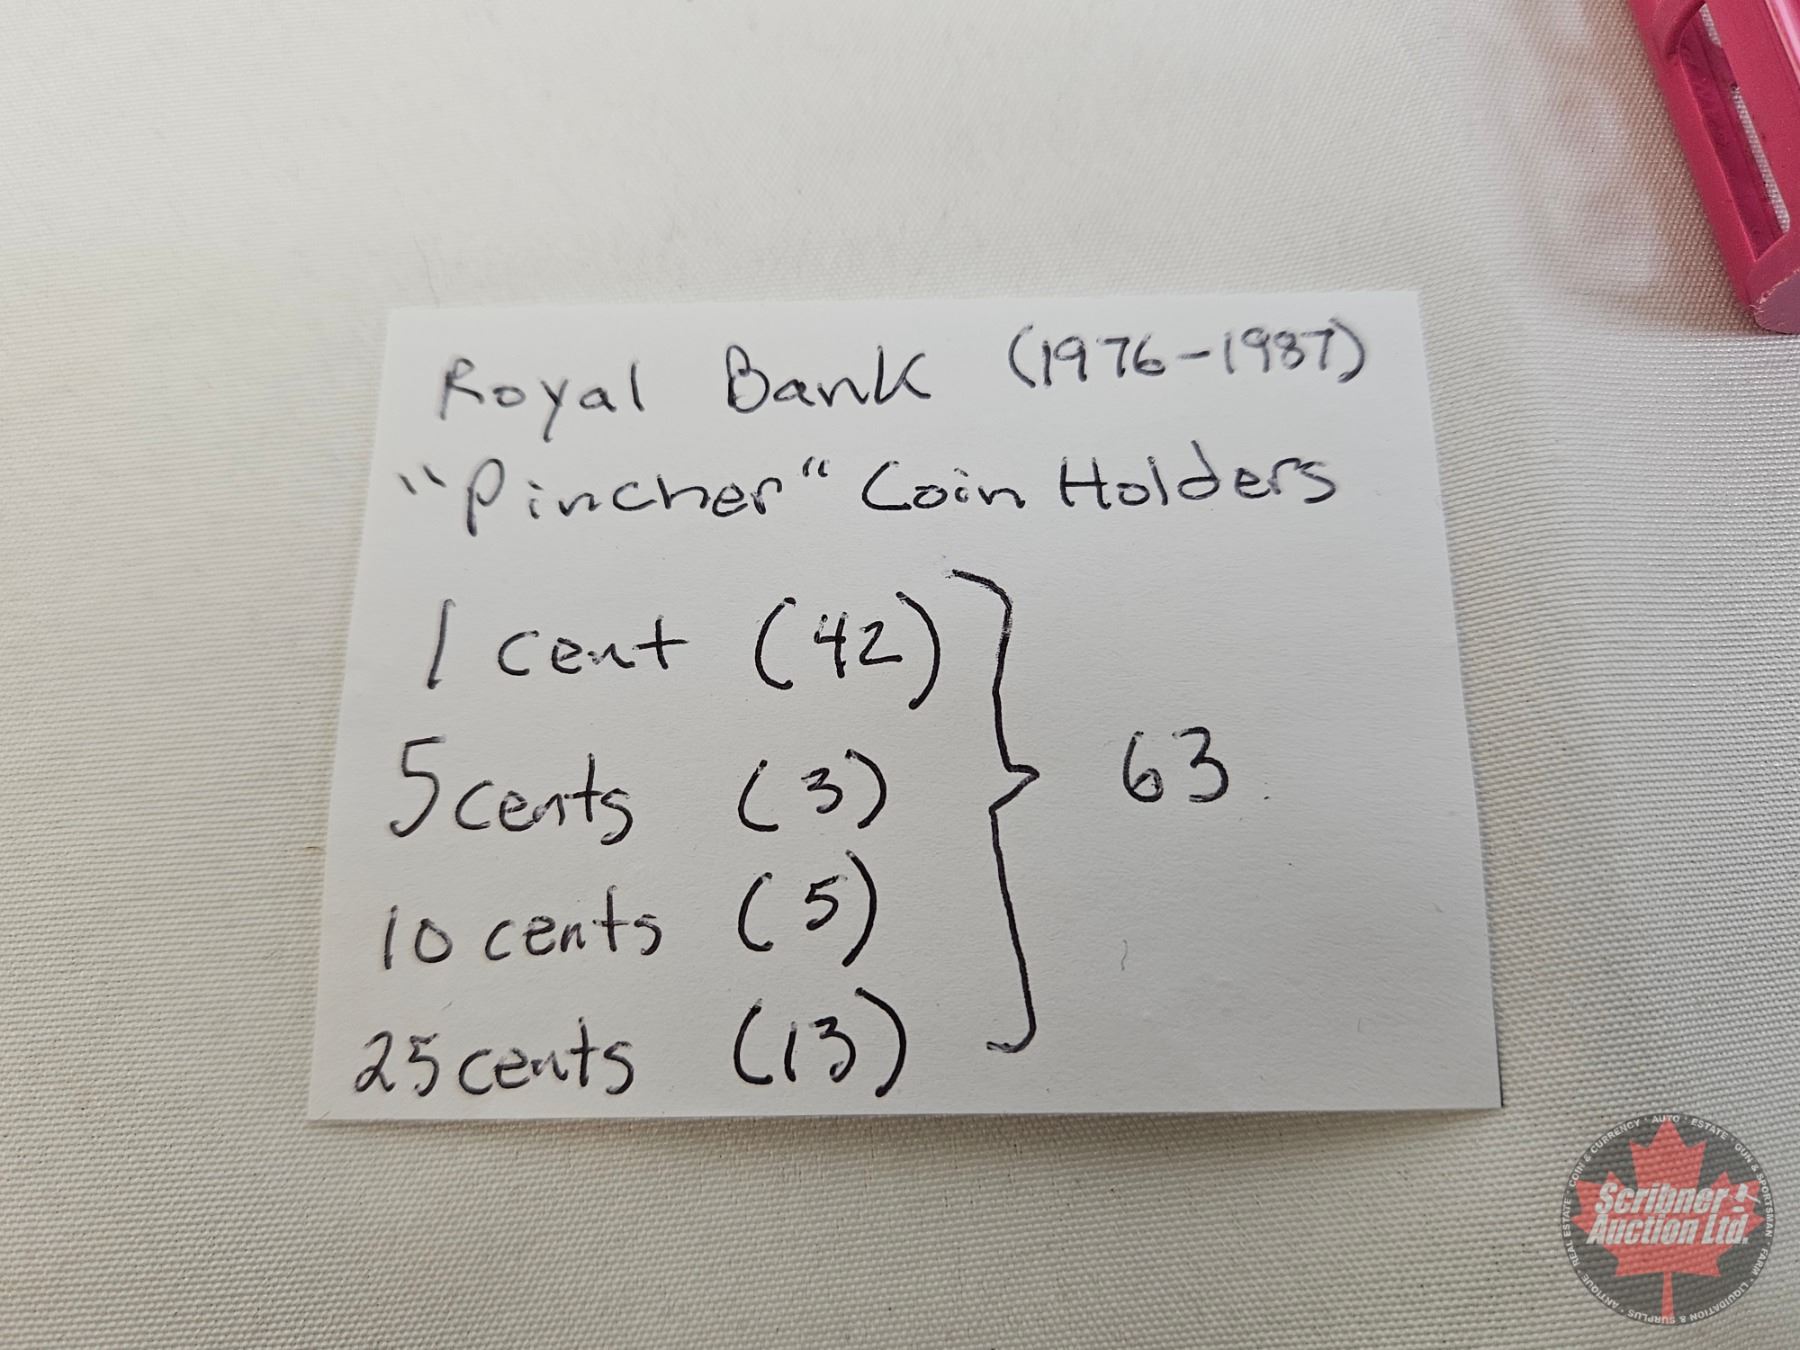 Royal Bank (1976-1987)
"Pincher" Coin Holders
1 cent (42)
5 cents (3)
10 cents (5)
25 cents (13)
63
Scribner
Auction Ltd.
COIN & CURRENCY · AUTO · ESTATE · GUN & SPORTSMAN · FARM · LIQUIDATION & SURPLUS · ANTIQUE · REAL ESTATE ·